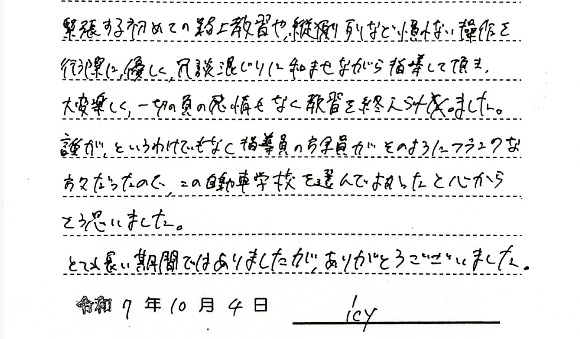 緊張する初めての路上教習や、縦列などの慣れない操作を
行う際に、優しく、冗談混じりに和ませながら指導して頂き、
大変楽しく、一切の負の感情もなく教習を終えられました。
誰が、というわけでもなく指導員の方全員がそのようにフランクな
方々だったので、この自動車学校を選んでよかったと心から
そう思いました。
とても長い期間ではありましたが、ありがとうございました。
令和 7 年 10 月 4 日 icy